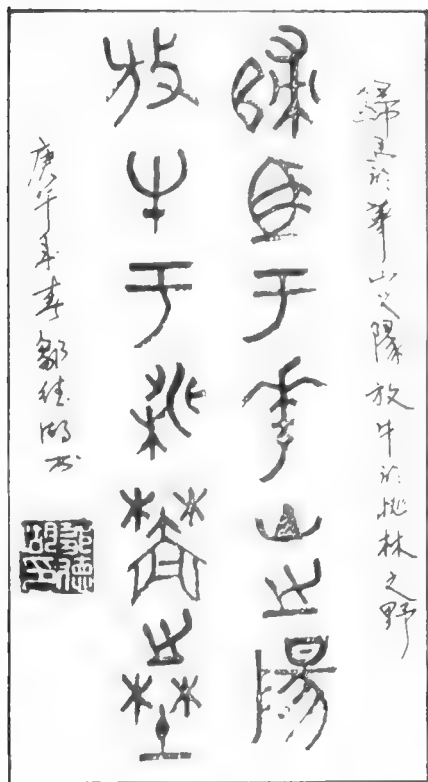 歸馬於華山之陽放牛於桃林之野
歸馬于華山之陽
放牛于桃林之埜
庚午年春鄒德湖书
鄒德
湖印